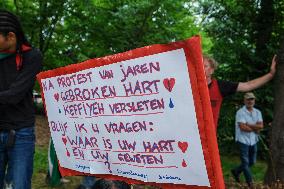 NA PROTEST VAN JAREN
GEBROKEN HART
KEFFIYEH VERSLETEN
BLIJF IK U VRAGEN:
WAAR IS UW HART
EN UW GEWETEN